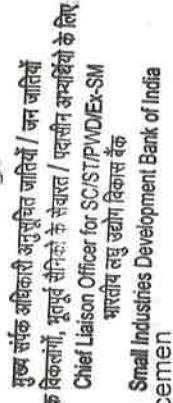 मुख्य संपर्क अधिकारी अनुसूचित जातियों / जन जातियों
क विकलांगों, भूतपूर्व सैनिकों के सेवारत / पदासीन अभ्यर्थियों के लिए
Chief Liaison Officer for SC/ST/PWD/Ex-SM
भारतीय लघु उद्योग विकास बैंक
Small Industries Development Bank of India
cemen